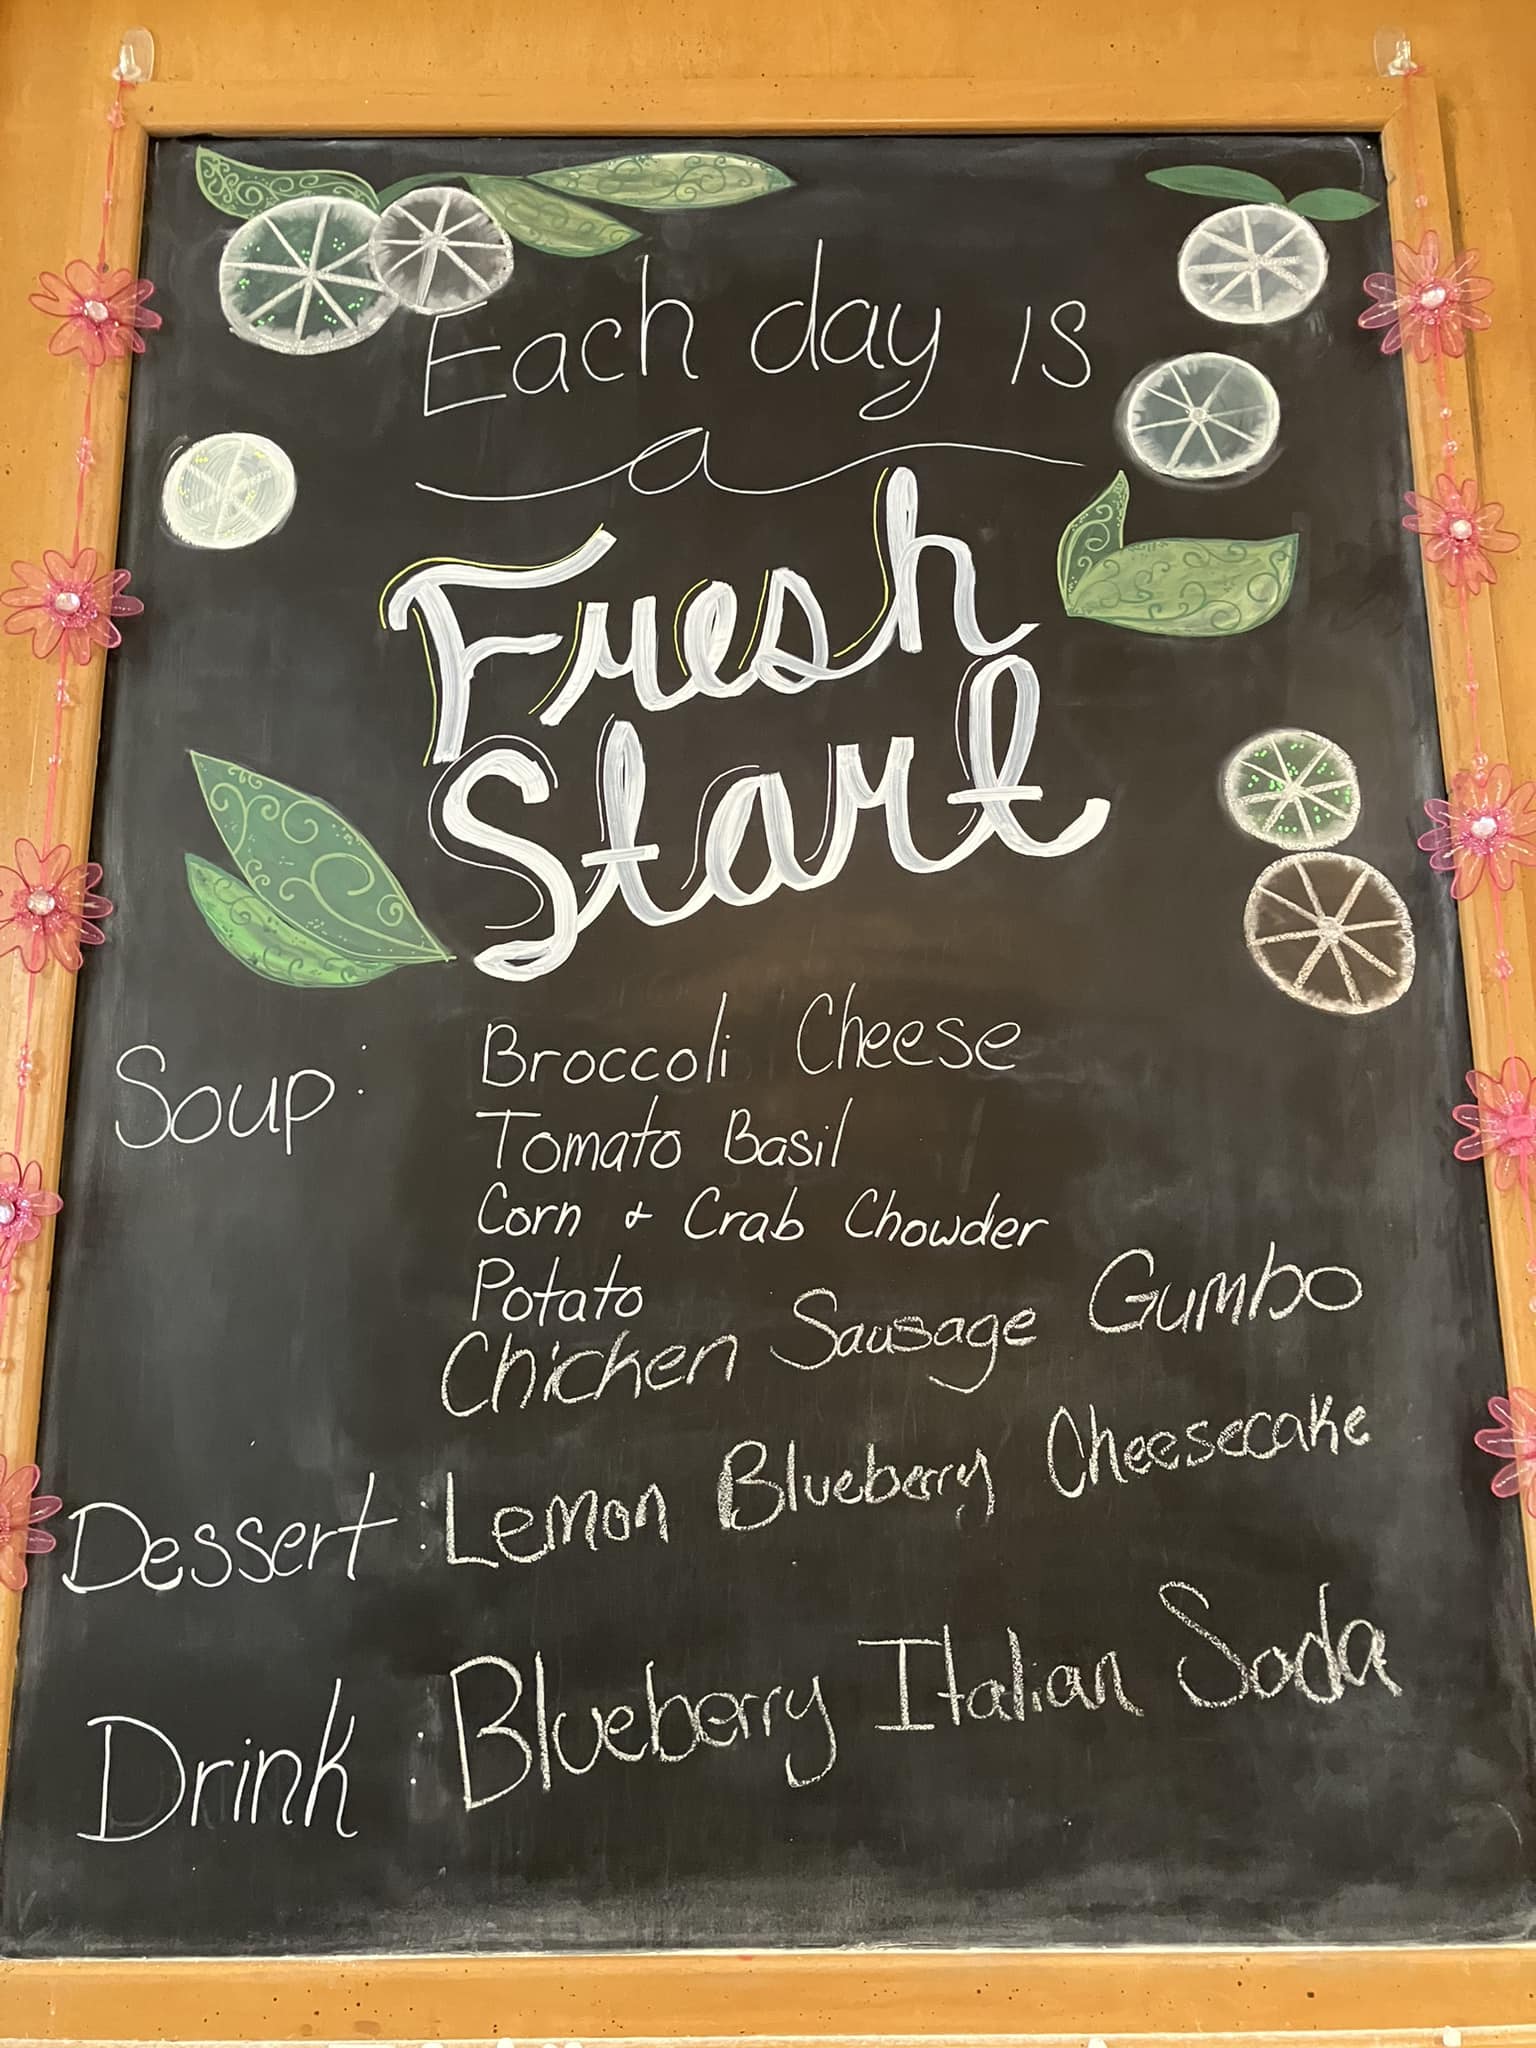 Each day is
a
Fresh
Start
Soup: Broccoli Cheese
Tomato Basil
Corn & Crab Chowder
Potato
Chicken Sausage Gumbo
Dessert: Lemon Blueberry Cheesecake
Drink: Blueberry Italian Soda